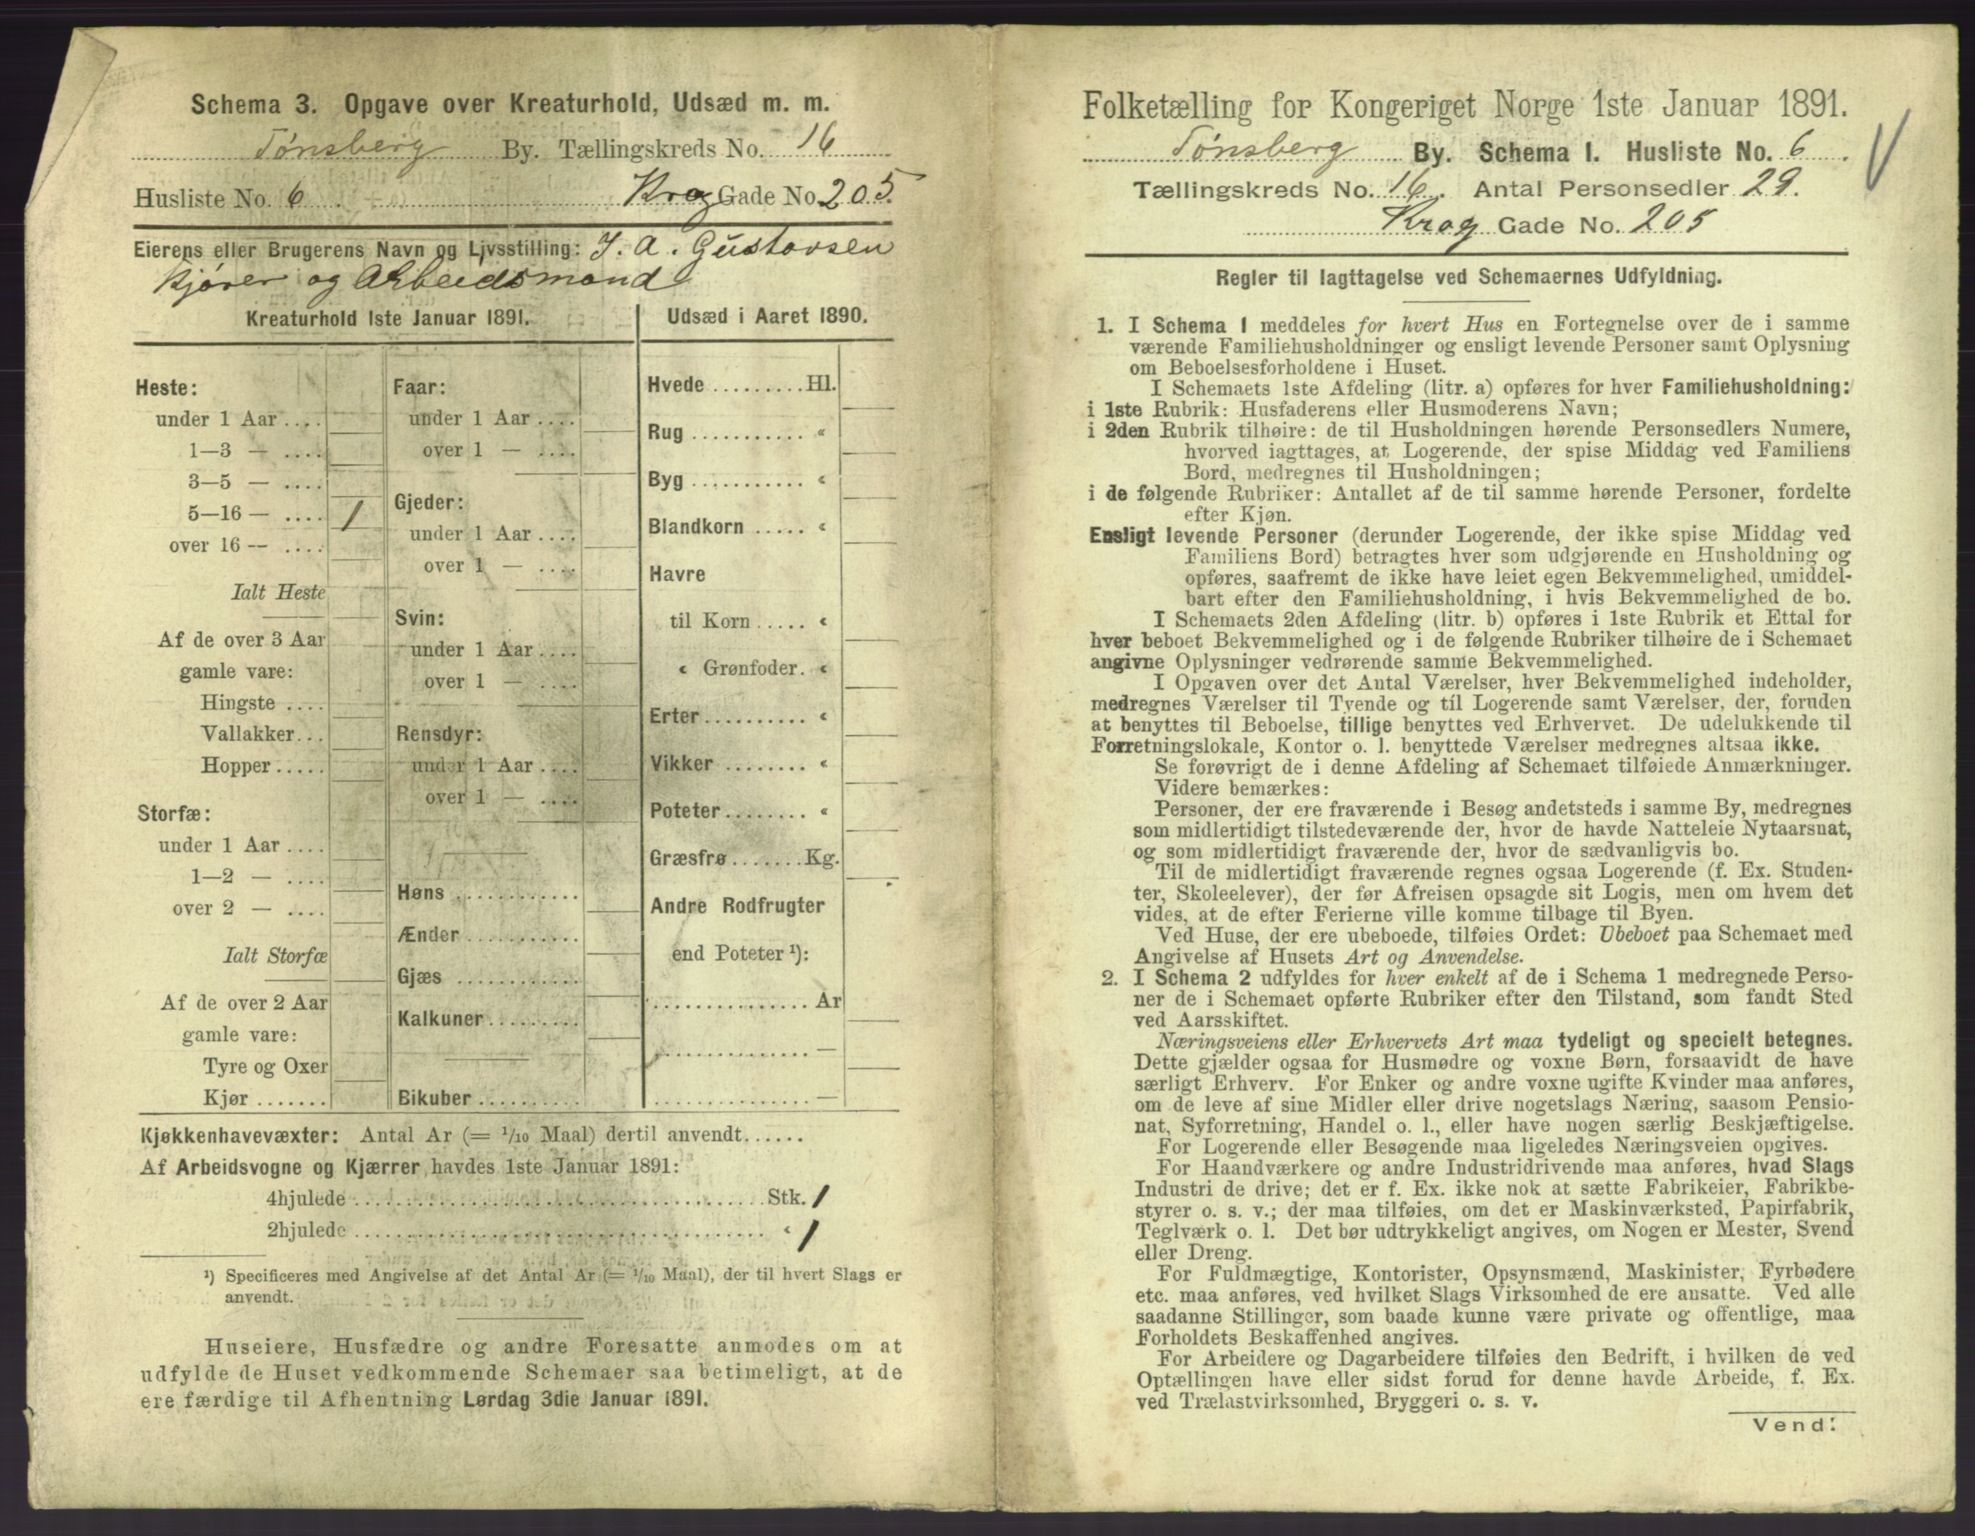 Schema 3. Opgave over Kreaturhold, Udsæd m. m.
Tønsberg By. Tællingskreds No. 16
Husliste No. 6. Krog Gade No. 205.
Eierens eller Brugerens Navn og Livsstilling: J. A. Gustavsen
Kjører og Arbeidsmand
Kreaturhold 1ste Januar 1891.
Heste:
under 1 Aar ....
1—3 — ....
3—5 — ....
5—16 — .... 1
over 16 — ....
Ialt Heste
Af de over 3 Aar
gamle vare:
Hingste ....
Vallakker...
Hopper .....
Storfæ:
under 1 Aar ....
1—2 — ....
over 2 — ....
Ialt Storfæ
Af de over 2 Aar
gamle vare:
Tyre og Oxer
Kjør .......
Faar:
under 1 Aar ....
over 1 — ....
Gjeder:
under 1 Aar ....
over 1 — ....
Svin:
under 1 Aar ....
over 1 — ....
Rensdyr:
under 1 Aar ....
over 1 — ....
Høns ...........
Ænder ..........
Gjæs ...........
Kalkuner.........
Bikuber..........
Udsæd i Aaret 1890.
Hvede .........Hl.
Rug ........... «
Byg ........... «
Blandkorn ..... «
Havre
til Korn ..... «
« Grønfoder. «
Erter.......... «
Vikker ........ «
Poteter........ «
Græsfrø .......Kg.
Andre Rodfrugter
end Poteter ¹):
............... Ar
............... —
............... —
Kjøkkenhavevæxter: Antal Ar (= 1/10 Maal) dertil anvendt......
Af Arbeidsvogne og Kjærrer havdes 1ste Januar 1891:
4hjulede ........................................ Stk. 1
2hjulede ........................................ « 1
¹) Specificeres med Angivelse af det Antal Ar (= 1/10 Maal), der til hvert Slags er
anvendt.
Huseiere, Husfædre og andre Foresatte anmodes om at
udfylde de Huset vedkommende Schemaer saa betimeligt, at de
ere færdige til Afhentning Lørdag 3die Januar 1891.
Folketælling for Kongeriget Norge 1ste Januar 1891.
Tønsberg By. Schema 1. Husliste No. 6.
Tællingskreds No. 16. Antal Personsedler 29.
Krog Gade No. 205
Regler til Iagttagelse ved Schemaernes Udfyldning.
1. I Schema 1 meddeles for hvert Hus en Fortegnelse over de i samme
værende Familiehusholdninger og ensligt levende Personer samt Oplysning
om Beboelsesforholdene i Huset.
I Schemaets 1ste Afdeling (litr. a) opføres for hver Familiehusholdning:
i 1ste Rubrik: Husfaderens eller Husmoderens Navn;
i 2den Rubrik tilhøire: de til Husholdningen hørende Personsedlers Numere,
hvorved iagttages, at Logerende, der spise Middag ved Familiens
Bord, medregnes til Husholdningen;
i de følgende Rubriker: Antallet af de til samme hørende Personer, fordelte
efter Kjøn.
Ensligt levende Personer (derunder Logerende, der ikke spise Middag ved
Familiens Bord) betragtes hver som udgjørende en Husholdning og
opføres, saafremt de ikke have leiet egen Bekvemmelighed, umiddel-
bart efter den Familiehusholdning, i hvis Bekvemmelighed de bo.
I Schemaets 2den Afdeling (litr. b) opføres i 1ste Rubrik et Ettal for
hver beboet Bekvemmelighed og i de følgende Rubriker tilhøire de i Schemaet
angivne Oplysninger vedrørende samme Bekvemmelighed.
I Opgaven over det Antal Værelser, hver Bekvemmelighed indeholder,
medregnes Værelser til Tyende og til Logerende samt Værelser, der, foruden
at benyttes til Beboelse, tillige benyttes ved Erhvervet. De udelukkende til
Forretningslokale, Kontor o. l. benyttede Værelser medregnes altsaa ikke.
Se forøvrigt de i denne Afdeling af Schemaet tilføiede Anmærkninger.
Videre bemærkes:
Personer, der ere fraværende i Besøg andetsteds i samme By, medregnes
som midlertidigt tilstedeværende der, hvor de havde Natteleie Nytaarsnat,
og som midlertidigt fraværende der, hvor de sædvanligvis bo.
Til de midlertidigt fraværende regnes ogsaa Logerende (f. Ex. Studen-
ter, Skoleelever), der før Afreisen opsagde sit Logis, men om hvem det
vides, at de efter Ferierne ville komme tilbage til Byen.
Ved Huse, der ere ubeboede, tilføies Ordet: Ubeboet paa Schemaet med
Angivelse af Husets Art og Anvendelse.
2. I Schema 2 udfyldes for hver enkelt af de i Schema 1 medregnede Perso-
ner de i Schemaet opførte Rubriker efter den Tilstand, som fandt Sted
ved Aarsskiftet.
Næringsveiens eller Erhvervets Art maa tydeligt og specielt betegnes.
Dette gjælder ogsaa for Husmødre og voxne Børn, forsaavidt de have
særligt Erhverv. For Enker og andre voxne ugifte Kvinder maa anføres,
om de leve af sine Midler eller drive nogetslags Næring, saasom Pensio-
nat, Syforretning, Handel o. l., eller have nogen særlig Beskjæftigelse.
For Logerende eller Besøgende maa ligeledes Næringsveien opgives.
For Haandværkere og andre Industridrivende maa anføres, hvad Slags
Industri de drive; det er f. Ex. ikke nok at sætte Fabrikeier, Fabrikbe-
styrer o. s. v.; der maa tilføies, om det er Maskinværksted, Papirfabrik,
Teglværk o. l. Det bør udtrykkeligt angives, om Nogen er Mester, Svend
eller Dreng.
For Fuldmægtige, Kontorister, Opsynsmænd, Maskinister, Fyrbødere
etc. maa anføres, ved hvilket Slags Virksomhed de ere ansatte. Ved alle
saadanne Stillinger, som baade kunne være private og offentlige, maa
Forholdets Beskaffenhed angives.
For Arbeidere og Dagarbeidere tilføies den Bedrift, i hvilken de ved
Optællingen have eller sidst forud for denne havde Arbeide, f. Ex.
ved Trælastvirksomhed, Bryggeri o. s. v.
Vend!